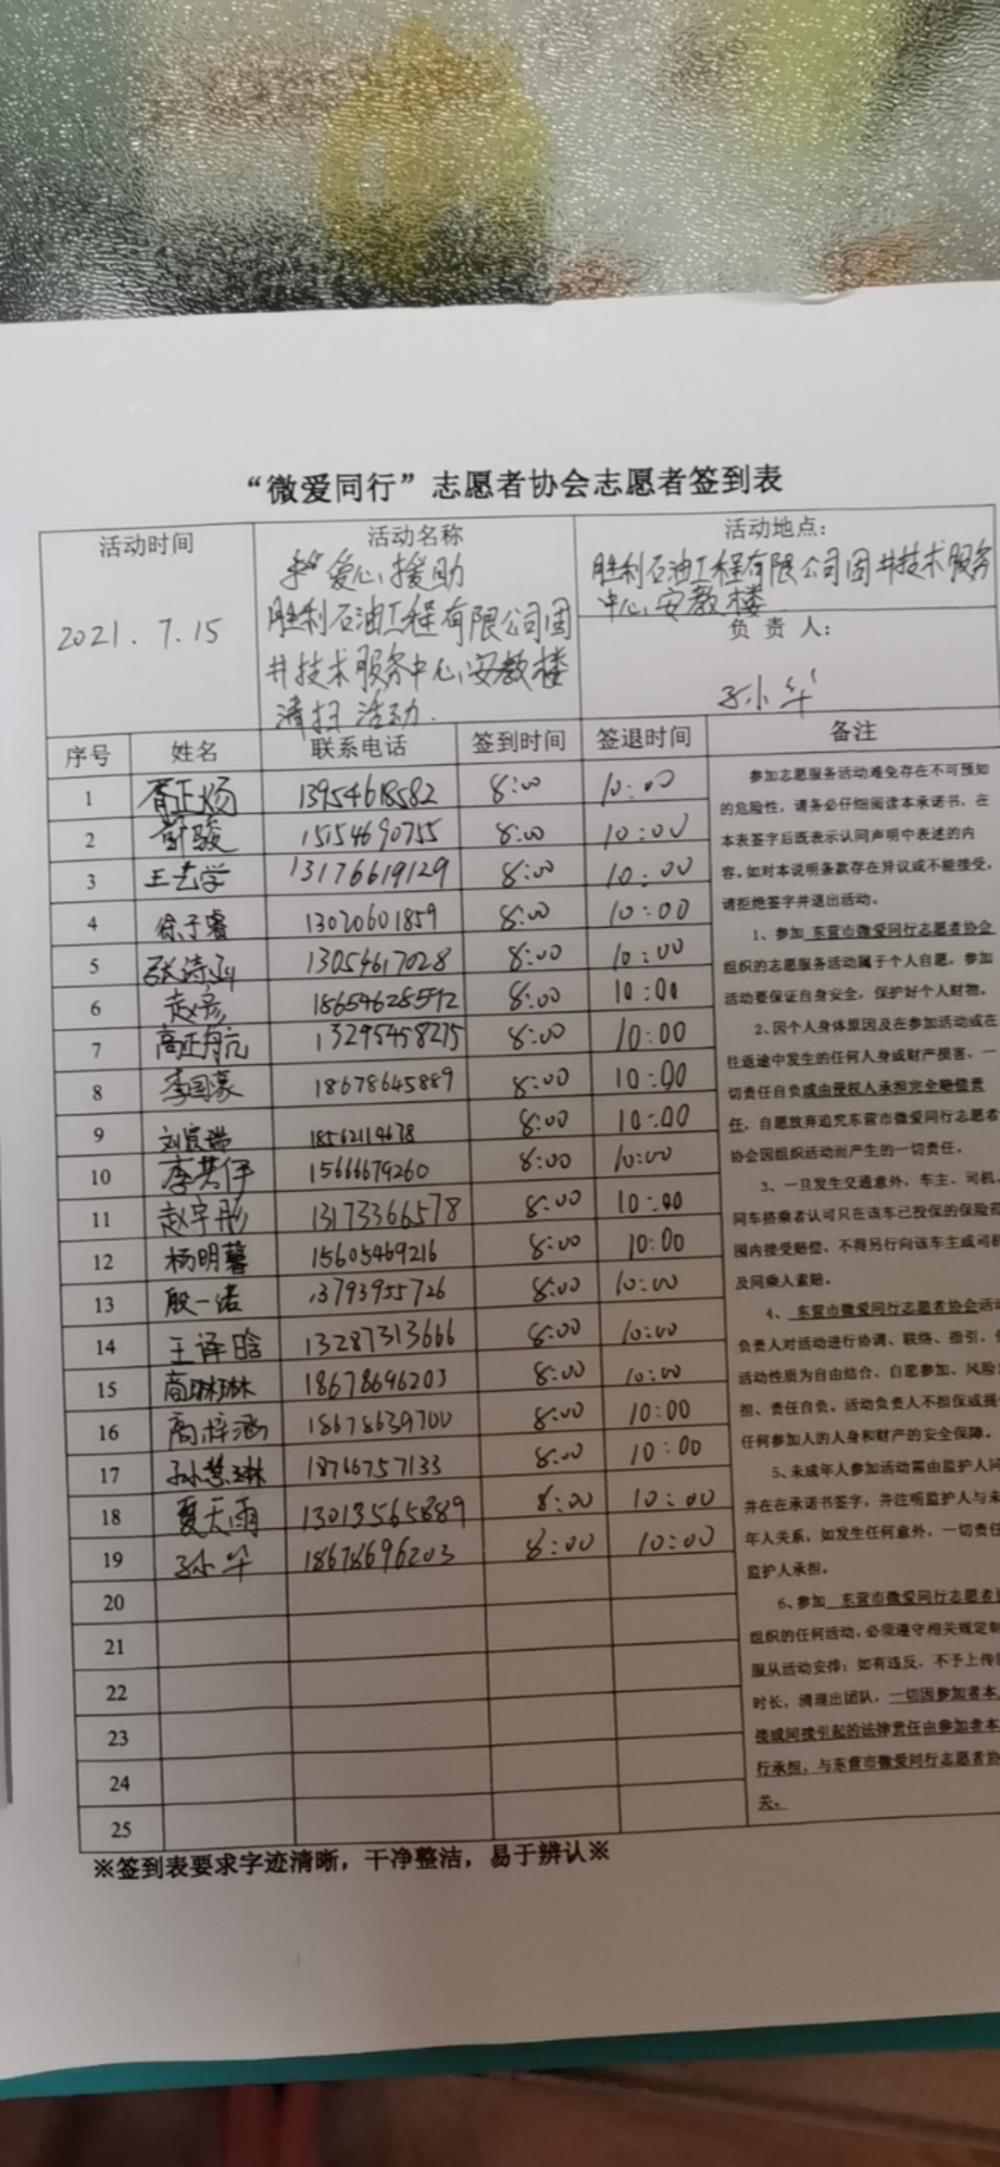 “微爱同行”志愿者协会志愿者签到表
活动时间
2021.7.15
活动名称
爱心援助
胜利石油工程有限公司固
井技术服务中心安教楼
清扫活动.
活动地点：
胜利石油工程有限公司固井技术服务
中心安教楼
负责人：
孙小华
序号 姓名 联系电话 签到时间 签退时间 备注
1 胥正炀 13954618582 8:00 10:00
2 15154690755 8:00 10:00
3 王艺学 13176619129 8:00 10:00
4 徐子睿 13020601859 8:00 10:00
5 张诗涵 13054617028 8:00 10:00
6 赵彦 18654628592 8:00 10:00
7 13295458275 8:00 10:00
8 李国豪 18678645889 8:00 10:00
9 刘宸瑞 18562114678 8:00 10:00
10 15666679260 8:00 10:00
11 赵宇彤 13173366578 8:00 10:00
12 杨明馨 15605469216 8:00 10:00
13 殷一诺 13793955726 8:00 10:00
14 王译晗 13287313666 8:00 10:00
15 高琳琳 18678696203 8:00 10:00
16 高梓涵 18678639700 8:00 10:00
17 孙慧琳 18766757133 8:00 10:00
18 夏天雨 13013565889 8:00 10:00
19 孙小华 18678696203 8:00 10:00
20
21
22
23
24
25
参加志愿服务活动难免存在不可预知
的危险性，请务必仔细阅读本承诺书，在
本表签字后既表示认同声明中表述的内
容。如对本说明条款存在异议或不能接受，
请拒绝签字并退出活动。
1、参加 东营市微爱同行志愿者协会
组织的志愿服务活动属于个人自愿，参加
活动要保证自身安全，保护好个人财物。
2、因个人身体原因及在参加活动或在
往返途中发生的任何人身或财产损害，一
切责任自负或由侵权人承担完全赔偿责
任，自愿放弃追究东营市微爱同行志愿者
协会因组织活动而产生的一切责任。
3、一旦发生交通意外，车主、司机、
同车搭乘者认可只在该车已投保的保险范
围内接受赔偿，不得另行向该车主或司机
及同乘人索赔。
4、 东营市微爱同行志愿者协会活动
负责人对活动进行协调、联络、指引，
活动性质为自由结合、自愿参加、风险
担、责任自负。活动负责人不担保或提
任何参加人的人身和财产的安全保障。
5、未成年人参加活动需由监护人同
并在在承诺书签字，并注明监护人与未
年人关系，如发生任何意外，一切责任
监护人承担。
6、参加 东营市微爱同行志愿者
组织的任何活动，必须遵守相关规定制
服从活动安排；如有违反，不予上传
时长，清理出团队，一切因参加者本
接或间接引起的法律责任由参加者本
行承担，与东营市微爱同行志愿者协
关。
※签到表要求字迹清晰，干净整洁，易于辨认※